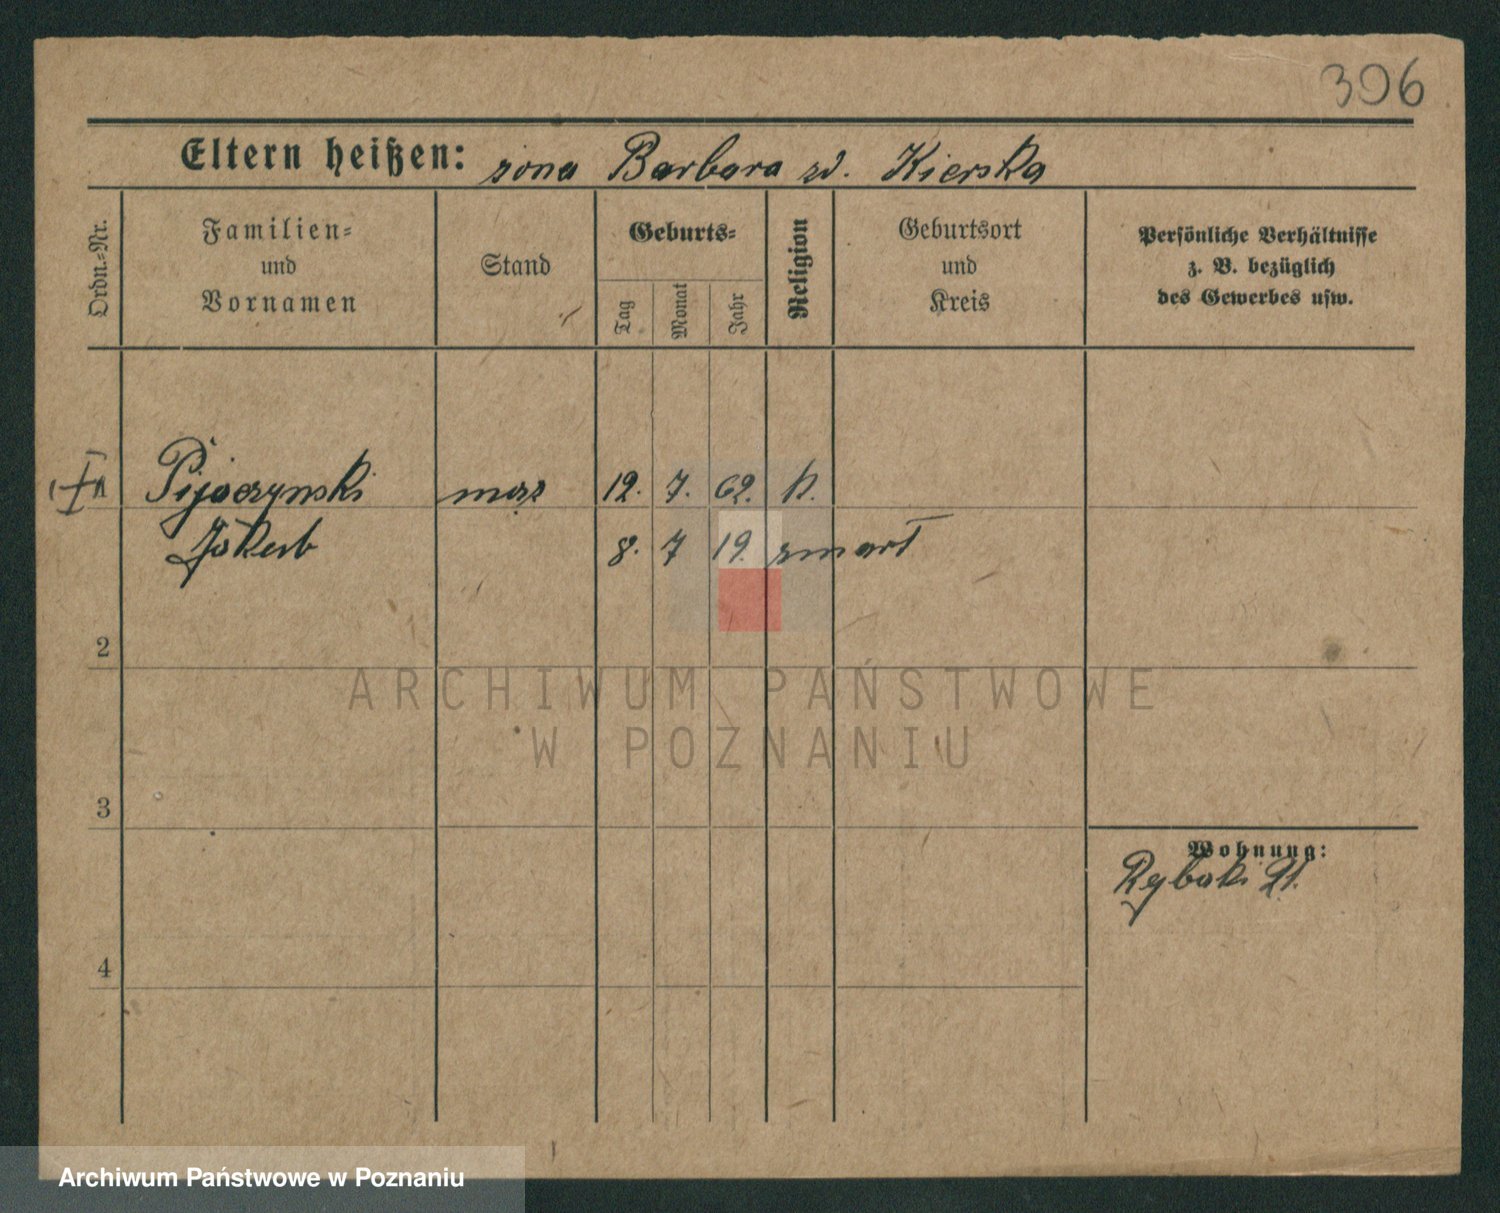 306
Eltern heißen: żona Barbara zd. Kierska
Ordn.-Nr.
Familien-
und
Vornamen
Stand
Geburts-
Tag
Monat
Jahr
Religion
Geburtsort
und
Kreis
Persönliche Verhältnisse
z. B. bezüglich
des Gewerbes usw.
Pijaczynski mąż 12. 7. 62. k.
Jakub 8. 7 19. zmarł
2
ARCHIWUM PAŃSTWOWE
W POZNANIU
3
Wohnung:
Rybaki 21.
4
Archiwum Państwowe w Poznaniu